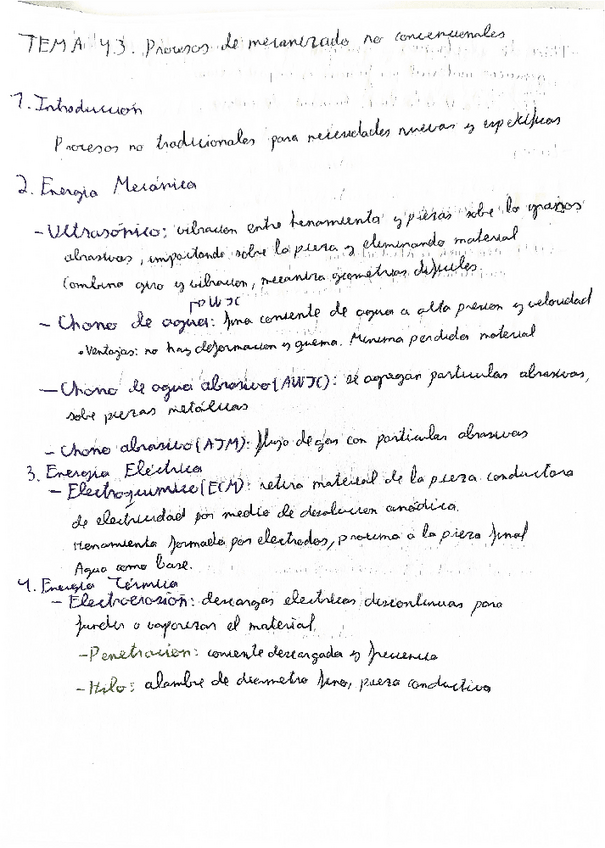 TEMA 4.3. Procesos de mecanizado no convencionales
1. Introducción
Procesos no tradicionales para necesidades nuevas y específicas
2. Energía Mecánica
- Ultrasónico: vibracion entre herramienta y piezas sobe lo granos
abrasivos, impactando sobre la pieza y eliminando material
Combina giro y vibracion, mecaniza geometrias dificiles.
WJC
- Chorro de agua: fina corriente de agua a alta presion y velocidad
• Ventajas: no hay deformacion y quema. Minima perdida material
- Chorro de agua abrasivo (AWJC): se agregan particulas abrasivas,
sobe piezas metálicas
- Chorro abrasivo (AJM): flujo de gas con particulas abrasivas
3. Energía Eléctrica
- Electroquimico (ECM): retira material de la pieza conductora
de electricidad por medio de disolucion anódica.
Herramienta formada por electrodos, proxima a la pieza final
Agua como base.
4. Energía Térmica
- Electroerosión: descargas electricas discontinuas para
fundir o vaporizar el material.
- Penetracion: corriente descargada y frecuencia
- Hilo: alambre de diametro fino, pieza conductiva